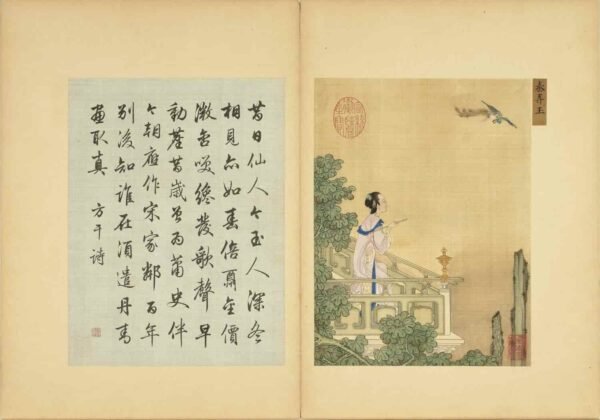 秦弄玉
昔日仙人今玉人深冬
相見亦如春倍酬金價
微含笑纔發歌聲早
動塵昔歲曾為蕭史伴
今朝應作宋家鄰百年
別後知誰在須遣丹青
畫取真　方干詩